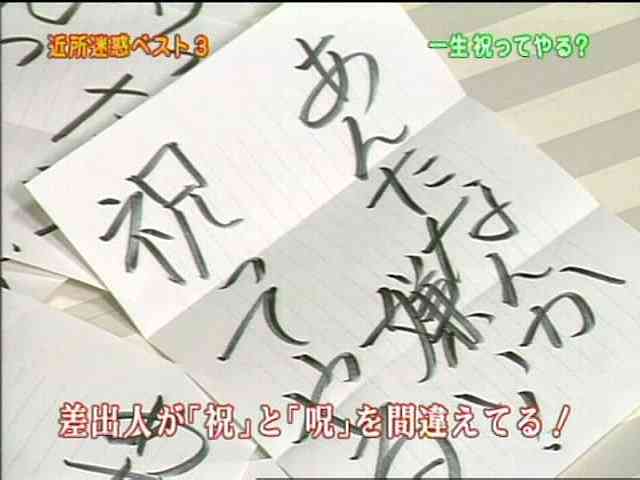 近所迷惑ベスト3
一生祝ってやる?
あんたなんか
大嫌い
祝ってやる
差出人が「祝」と「呪」を間違えてる!